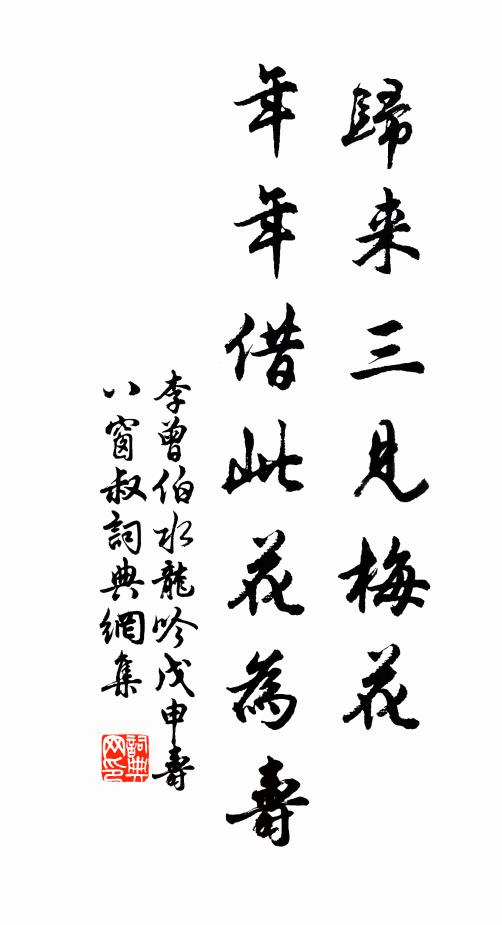 歸来三見梅花
年年借此花為壽
李曾伯水龍吟戊申壽
八窗叔詞典網集
詞典
网印